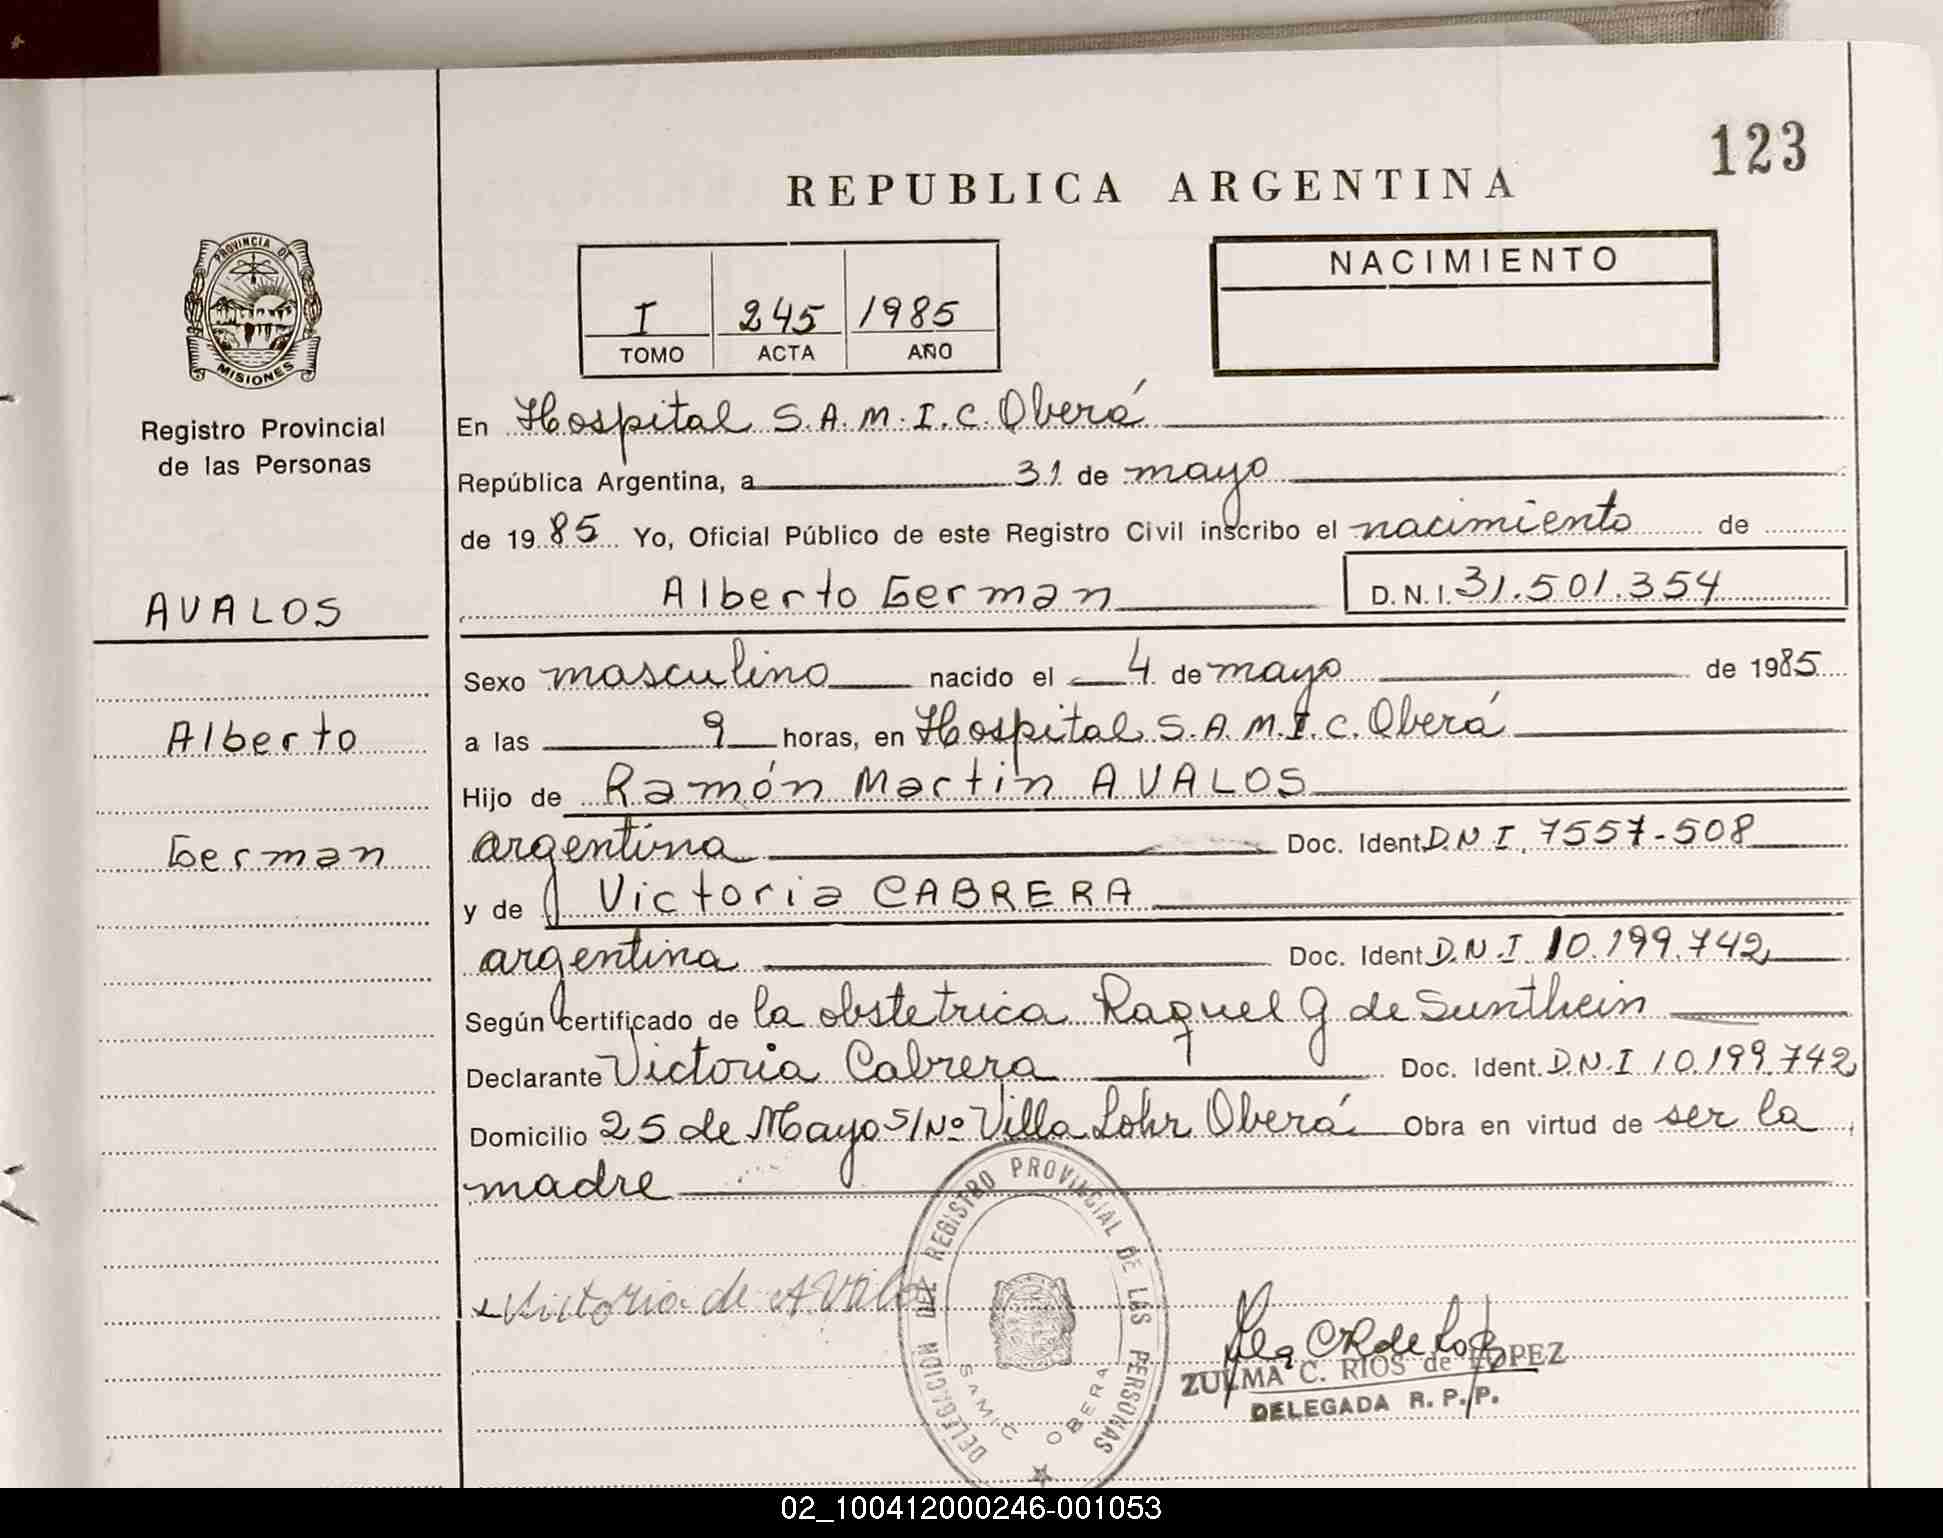 123
REPUBLICA ARGENTINA
PROVINCIA DE
MISIONES
Registro Provincial
de las Personas
I 245 1985
TOMO ACTA AÑO
NACIMIENTO
En Hospital S.A.M.I.C. Oberá
República Argentina, a 31 de mayo
de 1985 Yo, Oficial Público de este Registro Civil inscribo el nacimiento de
Alberto German D.N.I. 31.501.354
AVALOS
Sexo masculino nacido el 4 de mayo de 1985
Alberto
a las 9 horas, en Hospital S.A.M.I.C. Oberá
Hijo de Ramón Martin AVALOS
German
argentina Doc. Ident D.N.I. 7557-508
y de Victoria CABRERA
argentina Doc. Ident D.N.I. 10.199.742
Según certificado de la obstetrica Raquel G de Sunthein
Declarante Victoria Cabrera Doc. Ident. D.N.I 10.199.742
Domicilio 25 de Mayo S/Nº Villa Lohr Oberá Obra en virtud de ser la
madre
Victoria de
DELEGACION DEL REGISTRO PROVINCIAL DE LAS PERSONAS
SAMIC OBERA
ZULMA C. RIOS de LOPEZ
DELEGADA R. P. P.
02_100412000246-001053